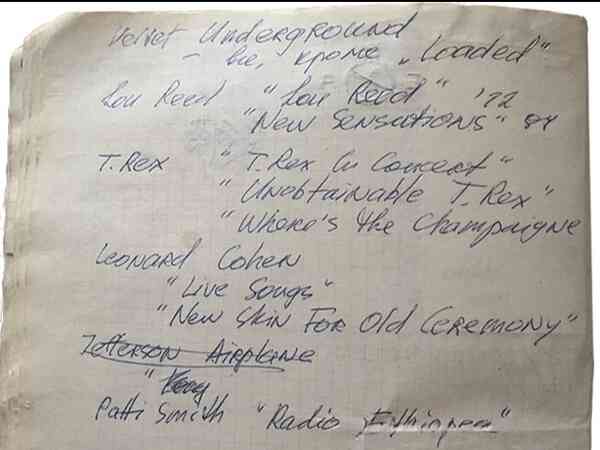 Velvet Underground
– все, кроме „Loaded"
Lou Reed "Lou Reed" '72
"New Sensations" 84
T.Rex "T.Rex In Concert"
"Unobtainable T.Rex"
"Where's the Champaigne
Leonard Cohen
"Live Songs"
"New Skin For Old Ceremony"
Jefferson Airplane
"
Patti Smith "Radio Ethiopea"